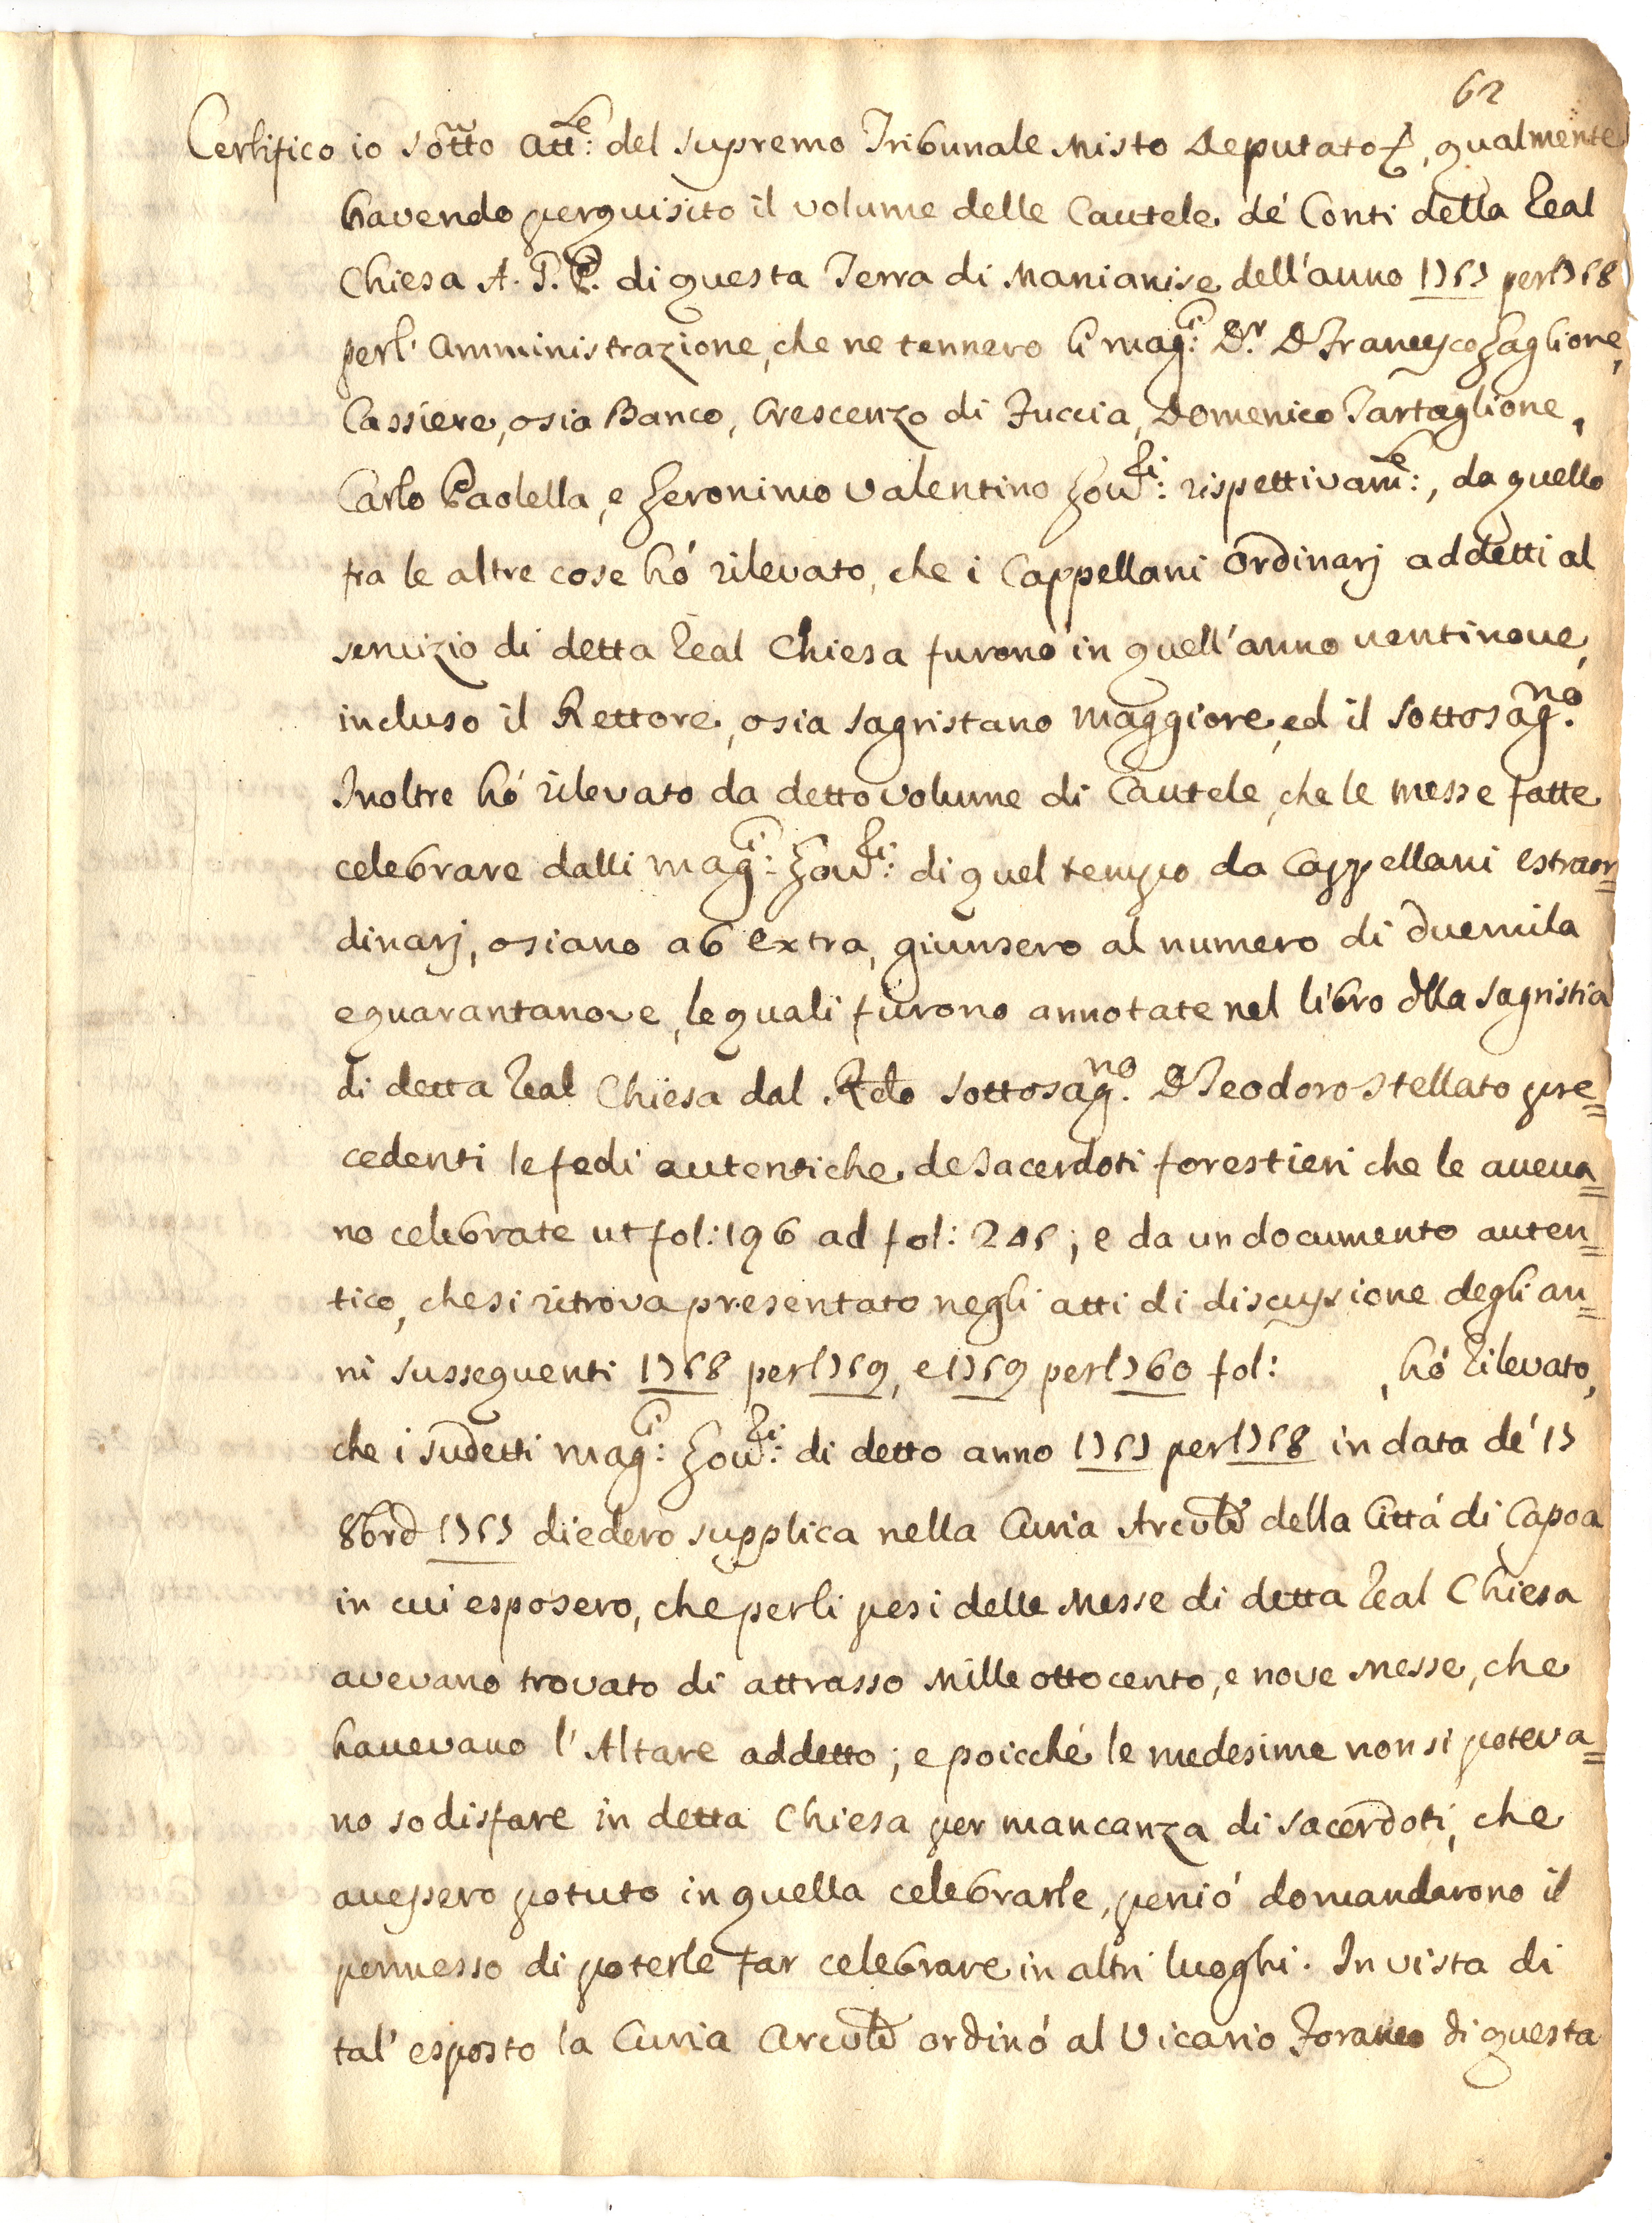 62
Certifico io sotto att.le del supremo Tribunale Misto Deputato, qualmente
havendo perquisito il volume delle Cautele de' Conti della Real
Chiesa A. G. P. di questa Terra di Marianise dell'anno 1757 per 1758
per l'amministrazione, che ne tennero li mag:ci D.r D Francesco Zaglione,
Cassiere, osia Banco, Crescenzo di Fuccia, Domenico Tartaglione,
Carlo Paolella, e Geronimo Valentino Gov:ri rispettivam:e, da quello
tra le altre cose hó rilevato, che i Cappellani ordinarj addetti al
servizio di detta Real Chiesa furono in quell'anno ventinove,
incluso il Rettore, osia sagristano maggiore, ed il sottosag.no
Inoltre hó rilevato da detto volume di Cautele, che le messe fatte
celebrare dalli mag:ci Gov:ri di quel tempo da Cappellani estraor=
dinarj, osiano ab extra, giunsero al numero di duemila
equarantanove, lequali furono annotate nel libro dlla sagristia
di detta Real Chiesa dal Rdo sottosag.no D Teodoro Stellato pre=
cedenti le fedi autentiche de Sacerdoti forestieri che le aveva=
no celebrate ut fol: 196 ad fol: 245; e da un documento auten=
tico, che si ritrova presentato negli atti di discussione degli an=
ni susseguenti 1758 per 1759, e 1759 per 1760 fol: , hó rilevato,
che i sudetti mag:ci Gov:ri di detto anno 1757 per 1758 in data de' 17
8bre 1757 diedero supplica nella Curia Arcvle della Cittá di Capoa
in cui esposero, che perli pesi delle Messe di detta Real Chiesa
avevano trovato di attrasso Mille ottocento, e nove Messe, che
havevano l'Altare addetto; e poicché le medesime non si poteva=
no sodisfare in detta Chiesa per mancanza di sacerdoti, che
avessero potuto in quella celebrarle, perió domandarono il
permesso di poterle far celebrare in altri luoghi. In vista di
tal' esposto la Curia Arcvle ordinó al Vicario Foraneo di questa